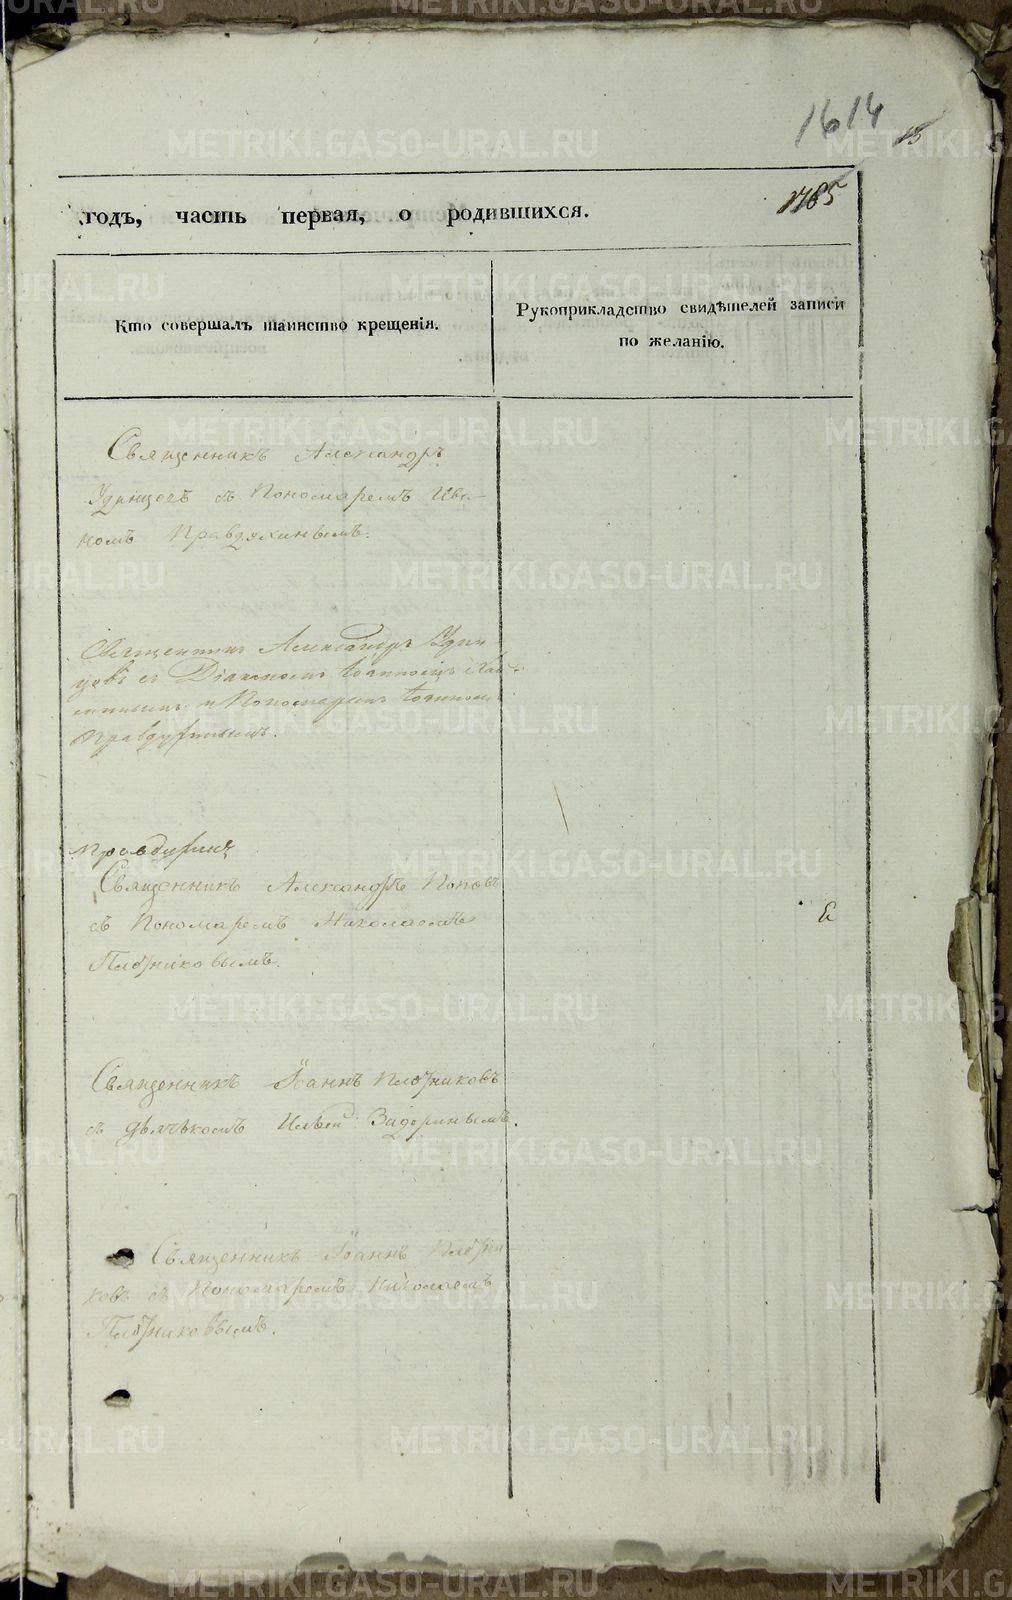 1614
15
1785
годъ, часть первая, о родившихся.
Кто совершалъ таинство крещенія.
Рукоприкладство свидѣтелей записи
по желанію.
Священникъ Александръ
Удинцевъ съ Пономаремъ Ива-
номъ Правдухинымъ.
Священникъ Александръ Удин
цовъ съ Діакономъ Іоанномъ
и Пономаремъ Іоанномъ
Правдухинымъ.
Правдухинъ
Священникъ Александръ Поповъ
съ Пономаремъ Николаемъ
Плотниковымъ.
Священникъ Іоаннъ Плотниковъ
съ Дьячькомъ Ильей Задоринымъ.
Священникъ Іоаннъ Плотни
ковъ съ Пономаремъ Николаемъ
Плотниковымъ.
METRIKI.GASO-URAL.RU